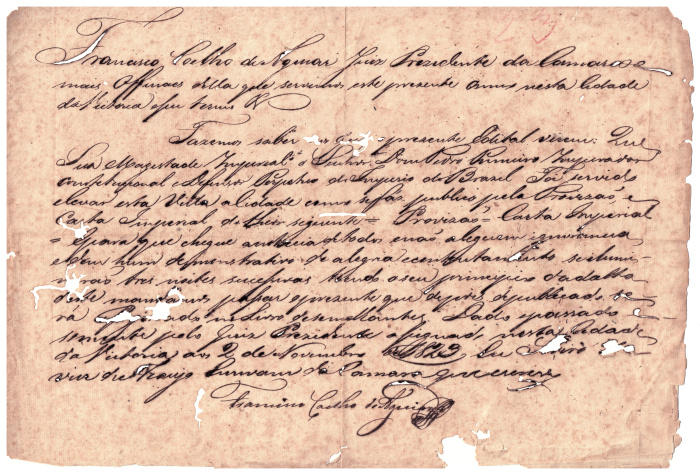 Francisco Coelho de Aguiar Juiz Prezidente da Camara e
mais Officiaes della que servimos este presente anno nesta Cidade
da Victoria e seu termo &
Fazemos saber aos que o presente Edital virem: Que
Sua Magestade Imperial o Senhor Dom Pedro Primeiro Imperador
Constitucional e Defensor Perpetuo do Imperio do Brazil Foi servido
elevar esta Villa a Cidade como se faz publico pela Provizaõ e
Carta Imperial do theor seguinte = Provizaõ = Carta Imperial
= E para que chegue a noticia de todos e naõ aleguem ignorancia
e em hum demonstrativo de alegria e contentamento se ilumi-
naraõ tres noites sucessivas tendo o seu principio da data
deste mandamos passar o presente que depois de publicado se-
rá no Livro de semelhantes. Dado e passado
somente pelo Juiz Prezidente assignado nesta Cidade
da Victoria aos 2 de Novembro 1823 Eu Xa-
vier de Araujo Escrivam da Camara que escrevi
Francisco Coelho de Aguiar